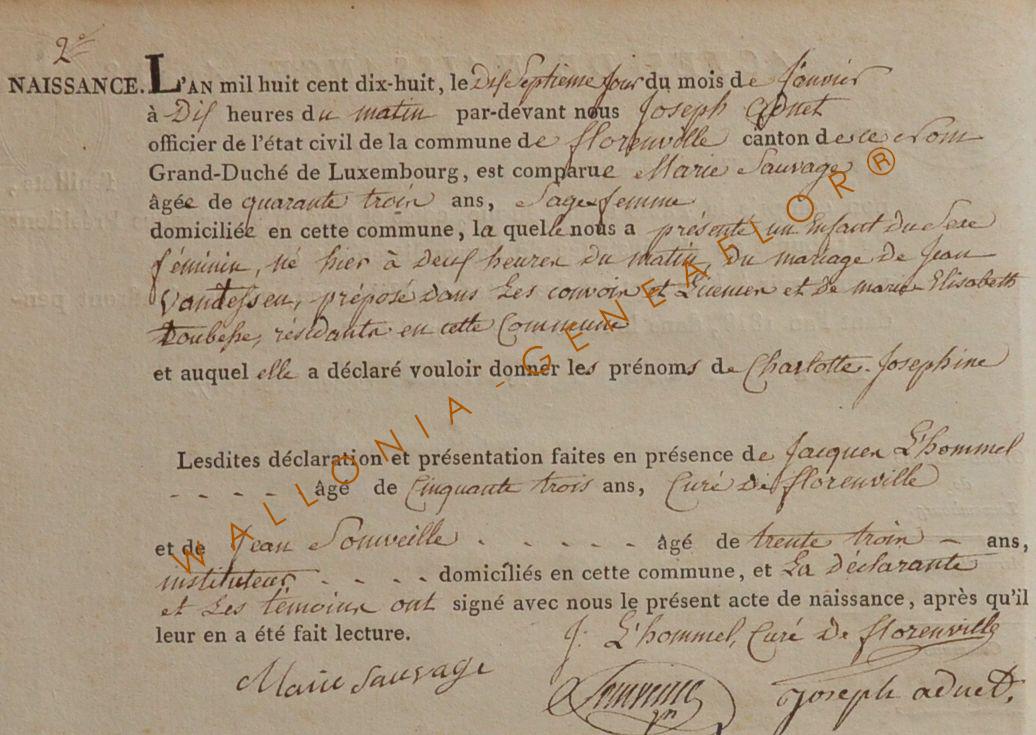 2e
NAISSANCE. L'AN mil huit cent dix-huit, le Dix Septieme jour du mois de Janvier
à Dix heures du matin par-devant nous Joseph Adnet
officier de l'état civil de la commune de florenville canton de ce Nom
Grand-Duché de Luxembourg, est comparue Marie Sauvage
âgée de quarante trois ans, Sage femme
domiciliée en cette commune, la quelle nous a présenté un Enfant du Sexe
féminin, né hier à deux heures du matin, du mariage de Jean
Vandessen, préposé dans Les convois et Licences et de marie Elisabeth
Toubesse, résidants en cette Commune
et auquel elle a déclaré vouloir donner les prénoms de Charlotte-Josephine
Lesdites déclaration et présentation faites en présence de Jacques L'hommel
- - - - âgé de Cinquante trois ans, Curé de florenville
et de Jean Sonveille - - - - - - âgé de trente trois - ans,
instituteur - - - - domiciliés en cette commune, et La déclarante
et Les témoins ont signé avec nous le présent acte de naissance, après qu'il
leur en a été fait lecture. J. L'hommel, Curé de florenville
Marie Sauvage Joseph adnet.
WALLONIA - GENEAFLOR ®